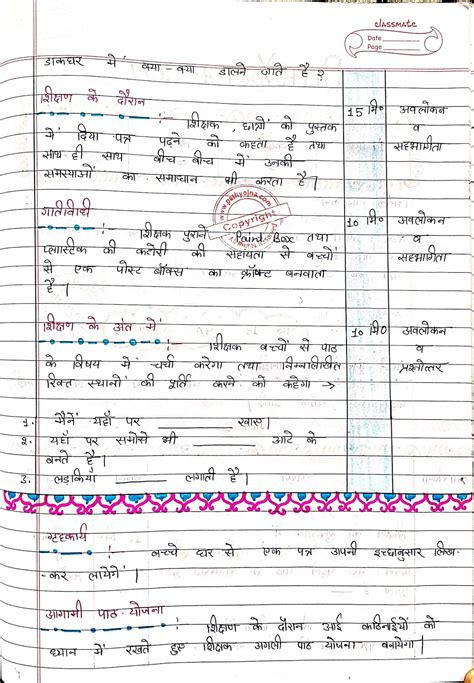 classmate
Date
Page
डाकघर में क्या-क्या डालने जाते है?
शिक्षण के दौरान
शिक्षक, छात्रों को पुस्तक 15 मि० अवलोकन
में दिया पत्र पढ़ने को कहता है तथा व
साथ ही साथ बीच-बीच में उनकी सहभागीता
समस्याओं का समाधान भी करता है।
गतिविधी
शिक्षक पुराने Paint Box तथा 10 मि० अवलोकन
प्लास्टिक की कटोरी की सहायता से बच्चों व
से एक पोस्ट बॉक्स का क्रॉफ्ट बनवाता सहभागीता
है।
Copyright
शिक्षण के अंत में
शिक्षक बच्चों से पाठ 10 मि० अवलोकन
के विषय में चर्चा करेगा तथा निम्नलिखित व
रिक्त स्थानों की पूर्ति करने को कहेगा → प्रश्नोत्तर
1. मैनें यहाँ पर ______ खाए।
2. यहाँ पर समोसे भी ______ आटे के
बनते है।
3. लड़कियां ______ लगाती है।
गृहकार्य
बच्चे घर से एक पत्र अपनी इच्छानुसार लिख-
-कर लायेगें।
आगामी पाठ-योजना
शिक्षण के दौरान आई कठिनाईयों को
ध्यान में रखते हुए शिक्षक अगली पाठ योजना बनायेगा।